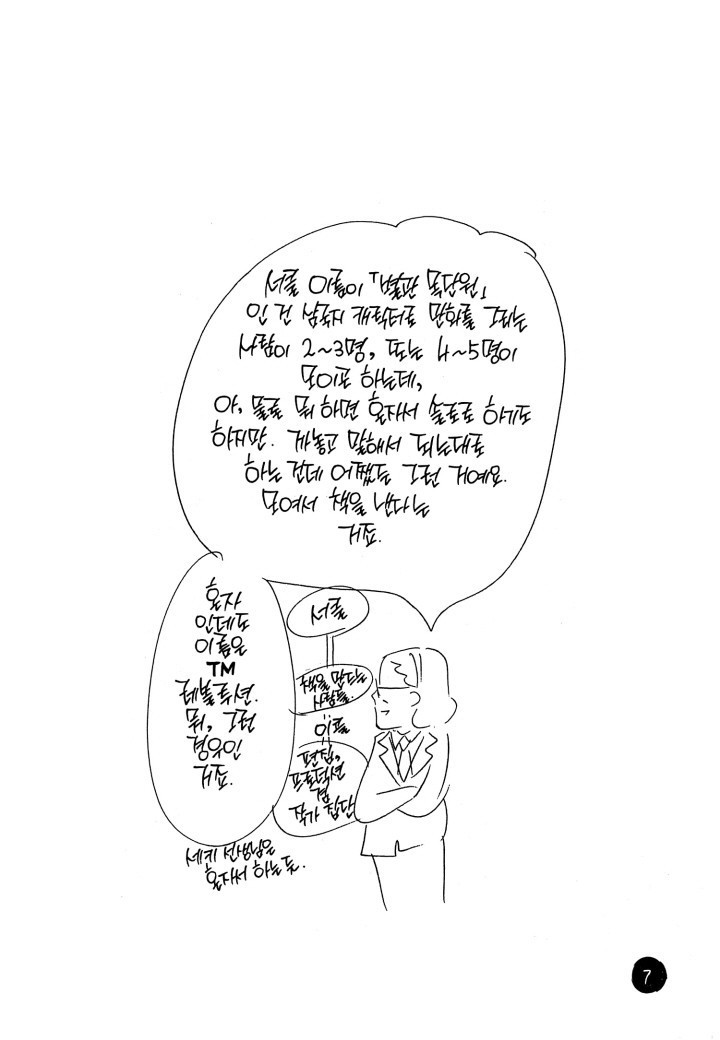 서클 이름이 「별관 목단원」
인 건 삼국지 캐릭터로 만화를 그리는
사람이 2~3명, 또는 4~5명이
모이고 하는데,
아, 물론 뭐 하면 혼자서 솔로로 하기도
하지만. 까놓고 말해서 되는대로
하는 건데 어쨌든 그런 거예요.
모여서 책을 낸다는
거죠.
혼자
인데도
이름은
TM
레볼루션.
뭐, 그런
경우인
거죠.
서클
책을 만드는
사람들.
이콜
편집,
프로덕션
겸
작가 집단
세키 선생님은
혼자서 하는 듯.
7